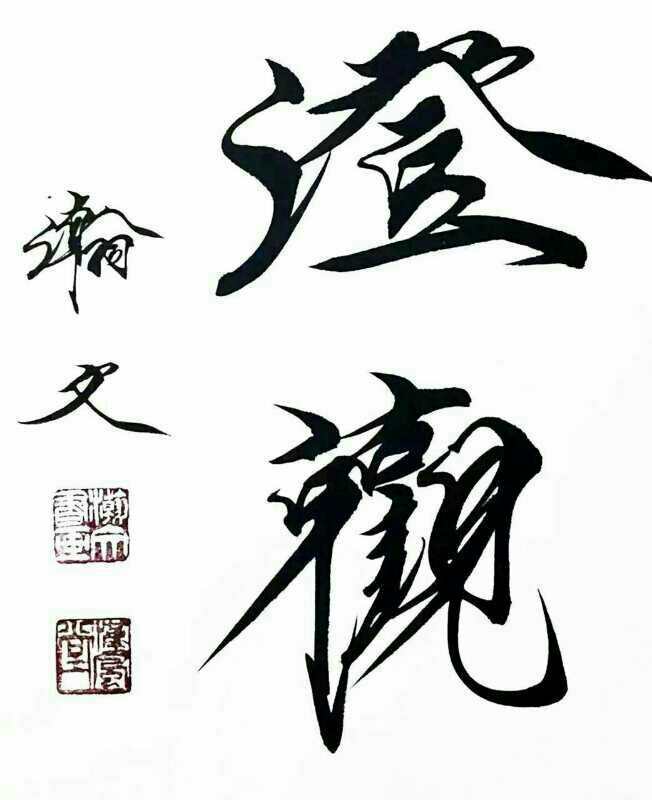 澄觀
瀚文